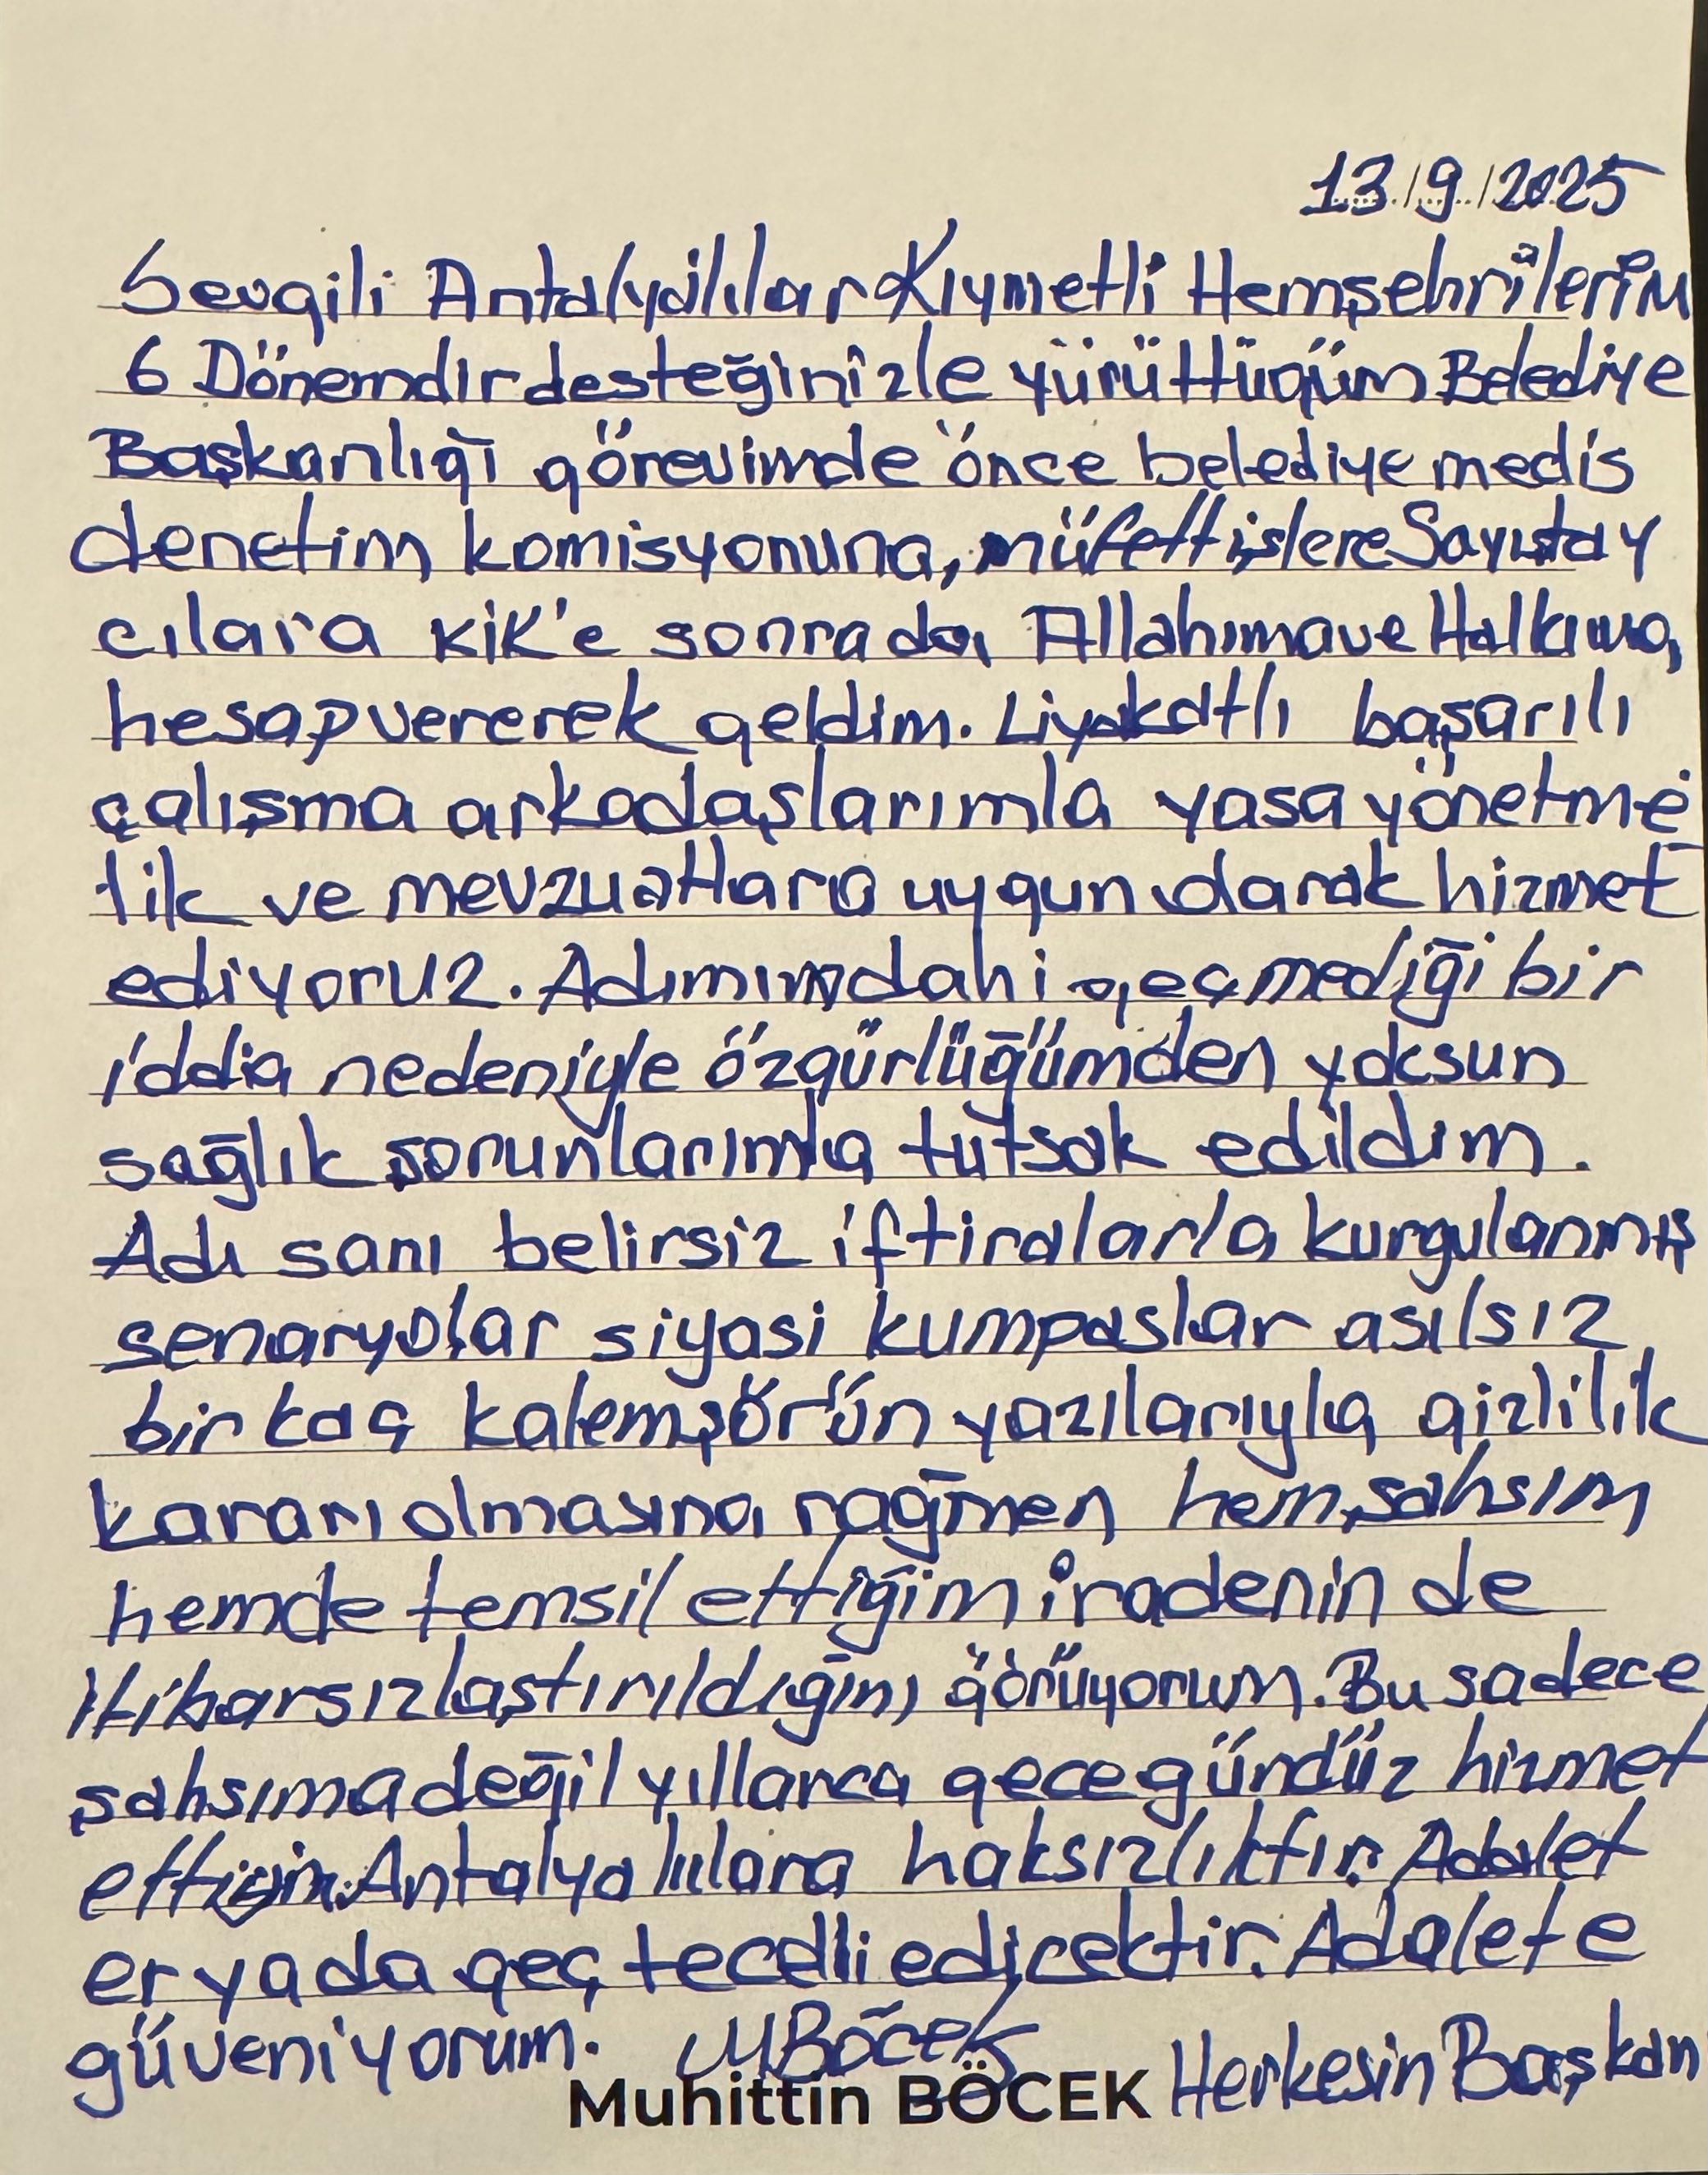 13/9/2025
Sevgili Antalyalılar Kıymetli Hemşehrilerim
6 Dönemdir desteğinizle yürüttüğüm Belediye
Başkanlığı görevimde önce belediye meclis
denetim komisyonuna, müfettişlere Sayıstay
cılara KİK'e sonra da Allahıma ve Halkıma,
hesap vererek geldim. Liyakatlı başarılı
çalışma arkadaşlarımla yasa yönetme
lik ve mevzuatlara uygun olarak hizmet
ediyoruz. Adımın dahi geçmediği bir
iddia nedeniyle özgürlüğümden yoksun
sağlık sorunlarımla tutsak edildim.
Adı sanı belirsiz iftiralarla kurgulanmış
senaryolar siyasi kumpaslar asılsız
bir kaç kalemşör'ün yazılarıyla gizlilik
kararı olmasına rağmen hem şahsım
hemde temsil ettiğim iradenin de
itibarsızlaştırıldığını görüyorum. Bu sadece
şahsıma değil yıllarca gece gündüz hizmet
ettiğim Antalyalılara haksızlıktır. Adalet
er ya da geç tecelli edicektir. Adalete
güveniyorum. MBöcek
Muhittin BÖCEK Herkesin Başkan